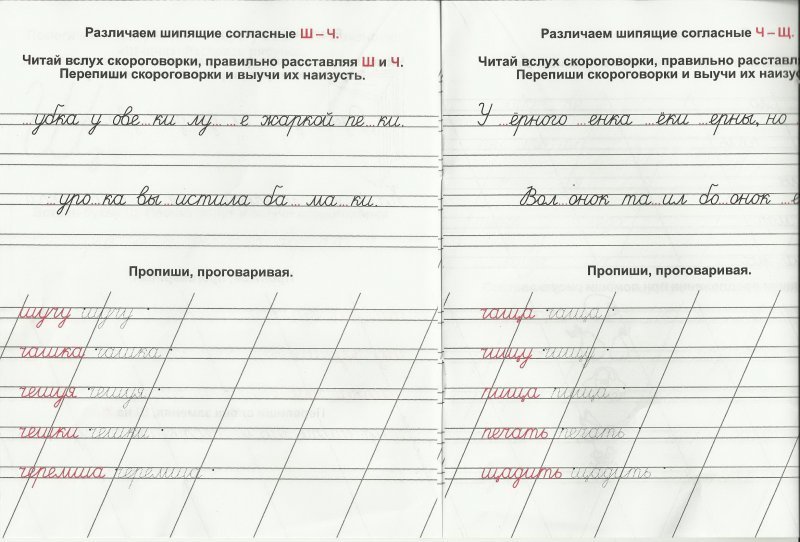 Различаем шипящие согласные Ш – Ч.
Читай вслух скороговорки, правильно расставляя Ш и Ч.
Перепиши скороговорки и выучи их наизусть.
...убка у ове...ки лу......е жаркой пе...ки.
...уро...ка вы...истила ба...ма...ки.
Пропиши, проговаривая.
шучу шучу
чашка чашка
чешуя чешуя
чешки чешки
черемша черемша
Различаем шипящие согласные Ч – Щ.
Читай вслух скороговорки, правильно расставля
Перепиши скороговорки и выучи их наизус
У ...ёрного ...енка ...ёки ...ерны, но
Вол...онок та...ил бо...онок ...
Пропиши, проговаривая.
чаща чаща
чищу чищу
пища пища
печать печать
щадить щадить